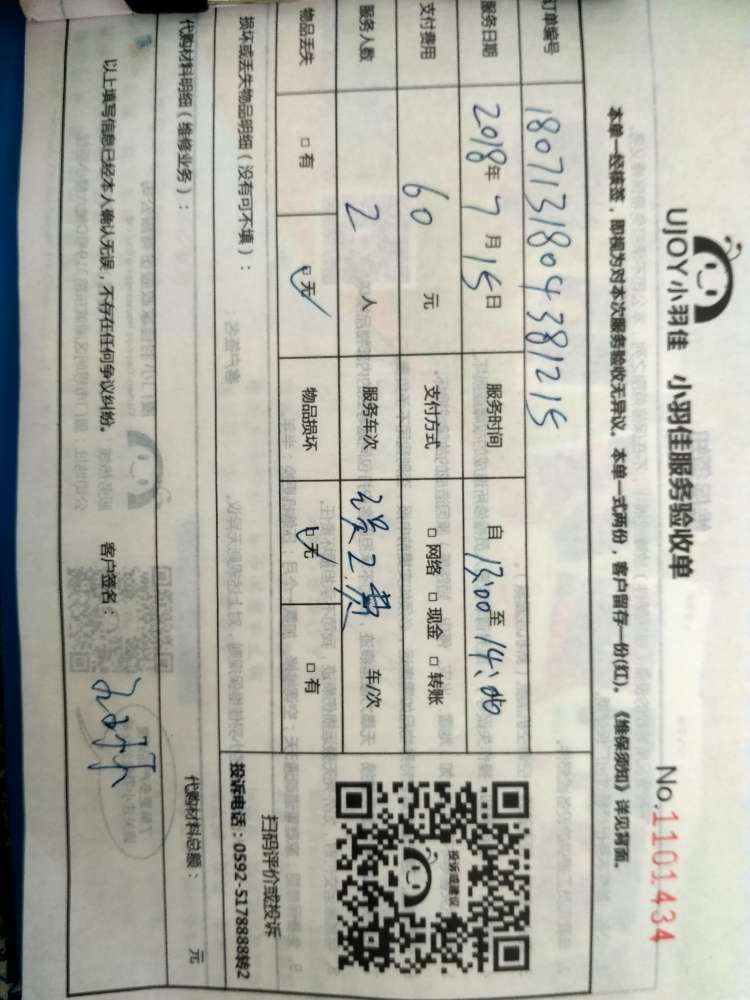 UJOY小羽佳 小羽佳服务验收单
No.1101434
本单一经核签，即视为对本次服务验收无异议。本单一式两份，客户留存一份(红)。《维保须知》详见背面。
订单编号 1807131804381215
服务日期 2018年7月15日 服务时间 自13:00至14:00
支付费用 60元 支付方式 □网络 □现金 □转账
服务人数 2人 服务车次 误工费 车/次
物品丢失 □有 ☑无 物品损坏 ☑无 □有
投诉或建议
扫码评价或投诉
投诉电话：0592-5178888转2
损坏或丢失物品明细（没有可不填）：
代购材料明细（维修业务）： 代购材料总额： 元
以上填写信息已经本人确认无误，不存在任何争议纠纷。 客户签名：